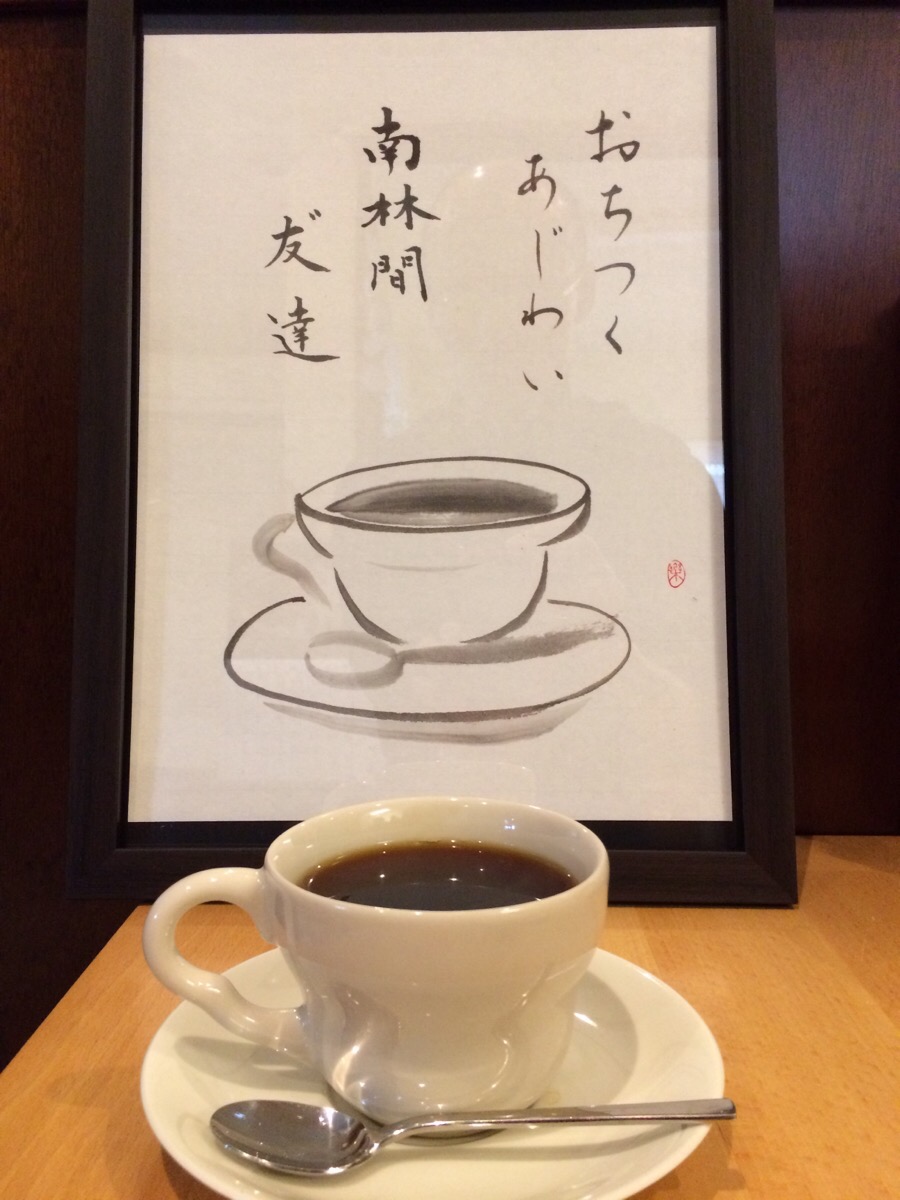 おちつく
あじわい
南林間
友達